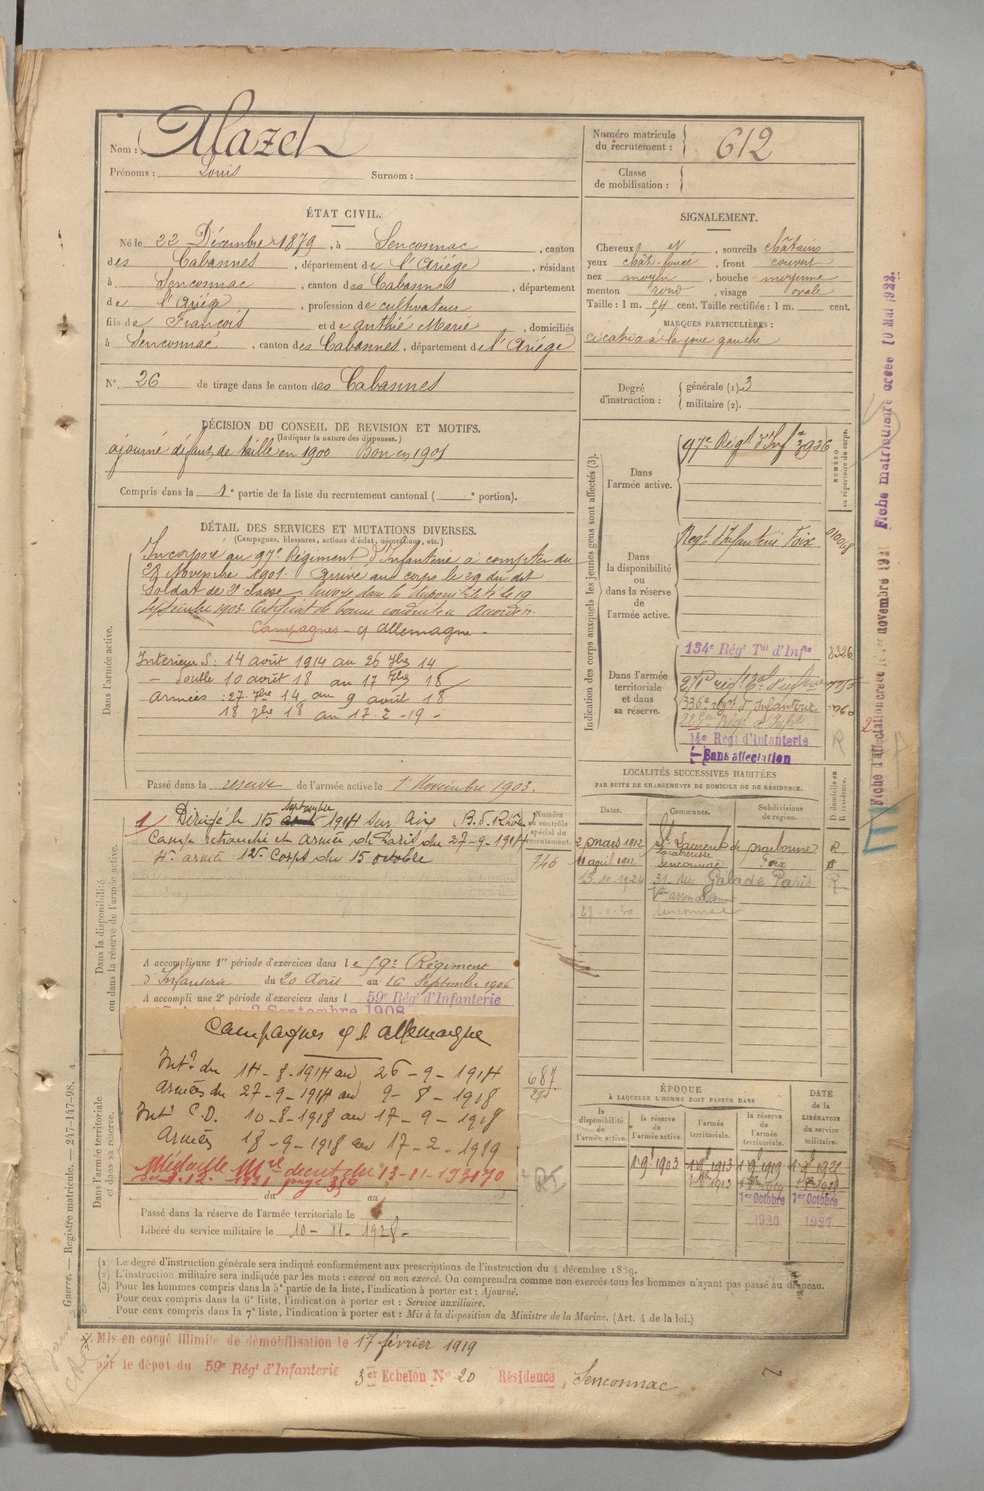 Nom : Alazet
Prénoms : Louis Surnom :
Numéro matricule du recrutement : 612
Classe de mobilisation :
ÉTAT CIVIL.
Né le 22 Décembre 1879, à Senconnac, canton
des Cabannes, département de l'Ariège, résidant
à Senconnac, canton des Cabannes, département
de l'Ariège, profession de cultivateur
fils de François et de Marie, domiciliés
à Senconnac, canton des Cabannes, département de l'Ariège
N° 26 de tirage dans le canton des Cabannes
SIGNALEMENT.
Cheveux et, sourcils châtains
yeux chât. foncé, front couvert
nez moyen, bouche moyenne
menton rond, visage ovale
Taille : 1 m. 54 cent. Taille rectifiée : 1 m. cent.
MARQUES PARTICULIÈRES :
cicatrice à la joue gauche
Degré d'instruction : générale (1). 3
militaire (2).
DÉCISION DU CONSEIL DE REVISION ET MOTIFS.
(Indiquer la nature des dispenses.)
ajourné défaut de taille en 1900 Bon en 1901
Compris dans la 1e partie de la liste du recrutement cantonal ( e portion).
DÉTAIL DES SERVICES ET MUTATIONS DIVERSES.
(Campagnes, blessures, actions d'éclat, décorations, etc.)
Dans l'armée active.
Incorporé au 97e Régiment d'Infanterie à compter du
23 Novembre 1901. Arrivé au corps le 29 du dit
Soldat de 2e classe. Envoyé dans la disponibilité le 19
Septembre 1903. Certificat de bonne conduite Accordé.
Campagnes - c/ Allemagne -
Intérieur S : 14 août 1914 au 26 7bre 14
- Double 10 août 18 au 17 7bre 18
Armées : 27 7bre 14 au 9 août 18
18 7bre 18 au 17-2-19-
Passé dans la réserve de l'armée active le 1er Novembre 1903.
Indication des corps auxquels les jeunes gens sont affectés (3).
NUMÉRO au répertoire du corps.
Dans l'armée active.
97e Régt d'Infie 3936
Dans la disponibilité ou dans la réserve de l'armée active.
Régt d'Infanterie Foix
Dans l'armée territoriale et dans sa réserve.
134e Régt Tal d'Infie
336e régt d'Infanterie
14e Régt d'Infanterie
Sans affectation
LOCALITÉS SUCCESSIVES HABITÉES
PAR SUITE DE CHANGEMENTS DE DOMICILE OU DE RÉSIDENCE.
Dates. Communes. Subdivisions de région. D domicile ou R résidence.
2 mars 1912 St Laurent de la Cabrerisse Narbonne R
11 avril 1912 Senconnac Foix
13.10.1924 31 rue Galande Paris R
Ve arrondissement
Senconnac
Dans la disponibilité ou dans la réserve de l'armée active.
Numéro au contrôle spécial du recrutement.
746
1/ Dirigé le 15 septembre 1914 sur Aix B.d. Rhône
Camp retranché et Armée de Paris du 27-9-1914
4e armée 12e Corps du 15 octobre
A accompli une 1re période d'exercices dans le 59e Régiment
d'Infanterie du 20 Août au 16 Septembre 1906
A accompli une 2e période d'exercices dans l 59e Régt d'Infanterie
Septembre 1908
Dans l'armée territoriale et dans sa réserve.
Campagnes c/ l'allemagne
Intr du 14-8-1914 au 26-9-1914
Armées du 27-9-1914 au 9-8-1918
Intr C.D. 10-8-1918 au 17-9-1918
Armées 18-9-1918 au 17-2-1919
Médaille Mre décret du 13-11-193
687
du au
Passé dans la réserve de l'armée territoriale le
Libéré du service militaire le 10-11-1928-
ÉPOQUE
À LAQUELLE L'HOMME DOIT PASSER DANS
la disponibilité de l'armée active. la réserve de l'armée active. l'armée territoriale. la réserve de l'armée territoriale. DATE de la LIBÉRATION du service militaire.
1.9.1903 1.9.1913 1.9.1919 1.9.1921
1er Octobre 1er Octobre
1920 1927
(1) Le degré d'instruction générale sera indiqué conformément aux prescriptions de l'instruction du 4 décembre 1889.
(2) L'instruction militaire sera indiquée par les mots : exercé ou non exercé. On comprendra comme non exercés tous les hommes n'ayant pas passé au drapeau.
(3) Pour les hommes compris dans la 5e partie de la liste, l'indication à porter est : Ajourné.
Pour ceux compris dans la 6e liste, l'indication à porter est : Service auxiliaire.
Pour ceux compris dans la 7e liste, l'indication à porter est : Mis à la disposition du Ministre de la Marine. (Art. 4 de la loi.)
Mis en congé illimité de démobilisation le 17 février 1919
par le dépôt du 59e Régt d'Infanterie 3er Echelon N° 20 Résidence, Senconnac
Guerre. — Registre matricule. — 247-147-98.
Fiche matriculaire créée 10 Mai 1922.
Fiche d'affectation créée le novembre 1921